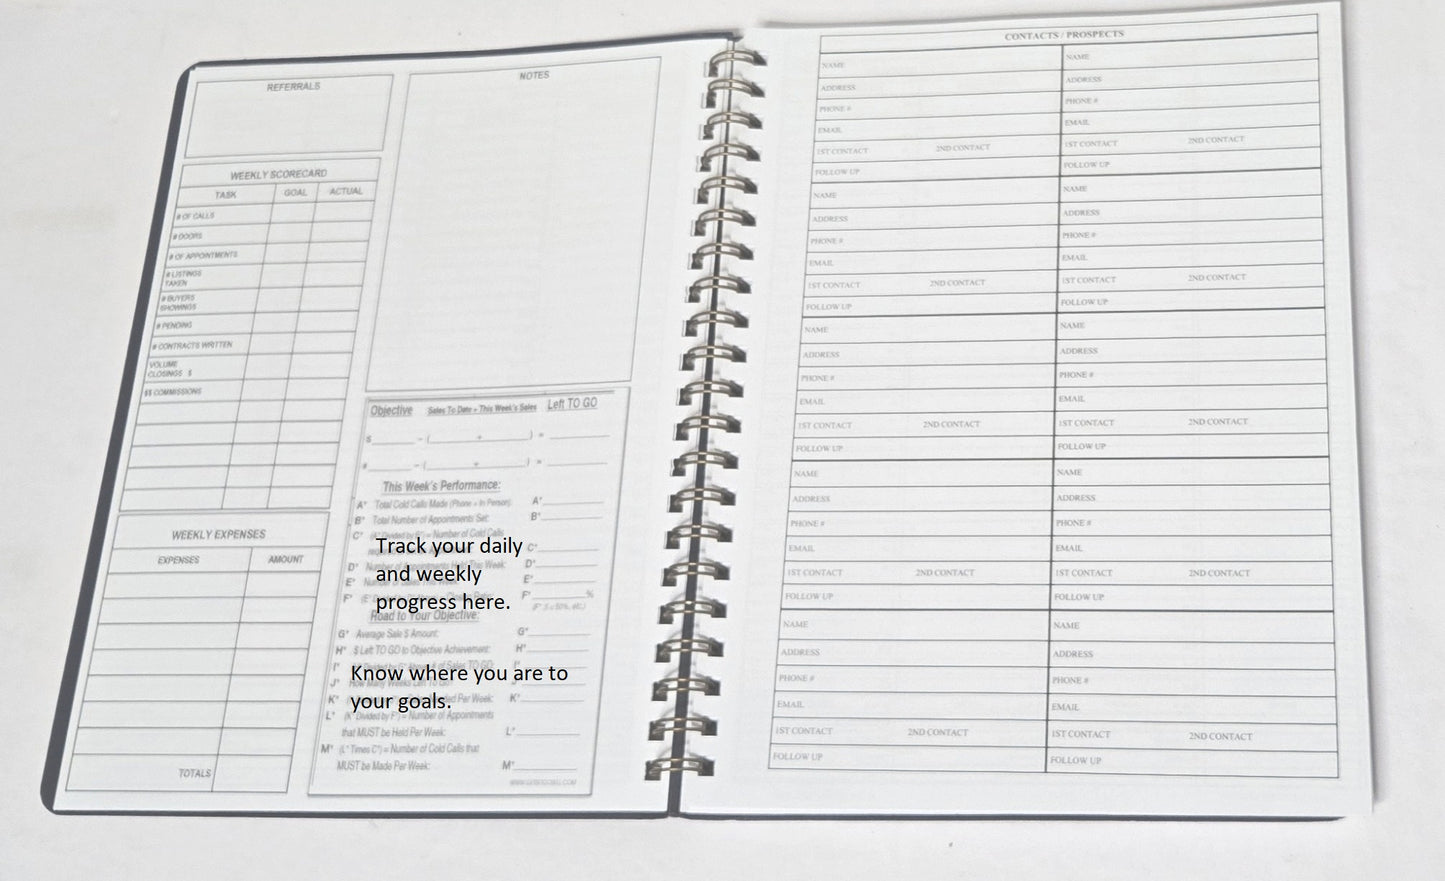 REFERRALS
WEEKLY SCORECARD
TASK GOAL ACTUAL
# OF CALLS
# DOORS
# OF APPOINTMENTS
# LISTINGS
TAKEN
# BUYERS
SHOWINGS
# PENDING
# CONTRACTS WRITTEN
VOLUME
CLOSINGS $
$$ COMMISSIONS
WEEKLY EXPENSES
EXPENSES AMOUNT
TOTALS
NOTES
Objective Sales To Date + This Week's Sales Left TO GO
$ - ( + ) =
# - ( + ) =
This Week's Performance:
A* Total Cold Calls Made (Phone + In Person) A*
B* Total Number of Appointments Set: B*
C* Number of Cold Calls
C*
D* This Week: D*
E* E*
F* F* %
Road to Your Objective:
G* Average Sale $ Amount: G*
H* $ Left TO GO to Objective Achievement: H*
I* of Sales TO GO I*
J* J*
K* Per Week: K*
L* (K* Divided by F*) = Number of Appointments
that MUST be Held Per Week: L*
M* (L* Times C*) = Number of Cold Calls that
MUST be Made Per Week: M*
Track your daily
and weekly
progress here.
Know where you are to
your goals.
CONTACTS / PROSPECTS
NAME NAME
ADDRESS ADDRESS
PHONE # PHONE #
EMAIL EMAIL
1ST CONTACT 2ND CONTACT 1ST CONTACT 2ND CONTACT
FOLLOW UP FOLLOW UP
NAME NAME
ADDRESS ADDRESS
PHONE # PHONE #
EMAIL EMAIL
1ST CONTACT 2ND CONTACT 1ST CONTACT 2ND CONTACT
FOLLOW UP FOLLOW UP
NAME NAME
ADDRESS ADDRESS
PHONE # PHONE #
EMAIL EMAIL
1ST CONTACT 2ND CONTACT 1ST CONTACT 2ND CONTACT
FOLLOW UP FOLLOW UP
NAME NAME
ADDRESS ADDRESS
PHONE # PHONE #
EMAIL EMAIL
1ST CONTACT 2ND CONTACT 1ST CONTACT 2ND CONTACT
FOLLOW UP FOLLOW UP
NAME NAME
ADDRESS ADDRESS
PHONE # PHONE #
EMAIL EMAIL
1ST CONTACT 2ND CONTACT 1ST CONTACT 2ND CONTACT
FOLLOW UP FOLLOW UP